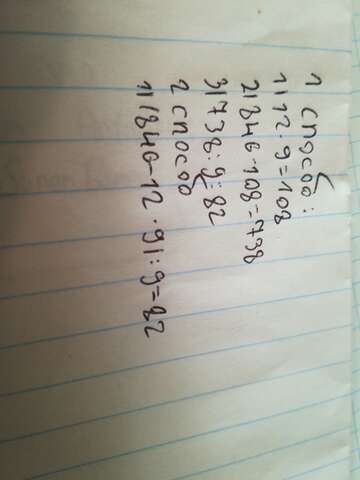 1 способ:
1) 12 · 9 = 108
2) 846 - 108 = 738
3) 738 : 9 = 82
2 способ
1) (846 - 12 · 9) : 9 = 82